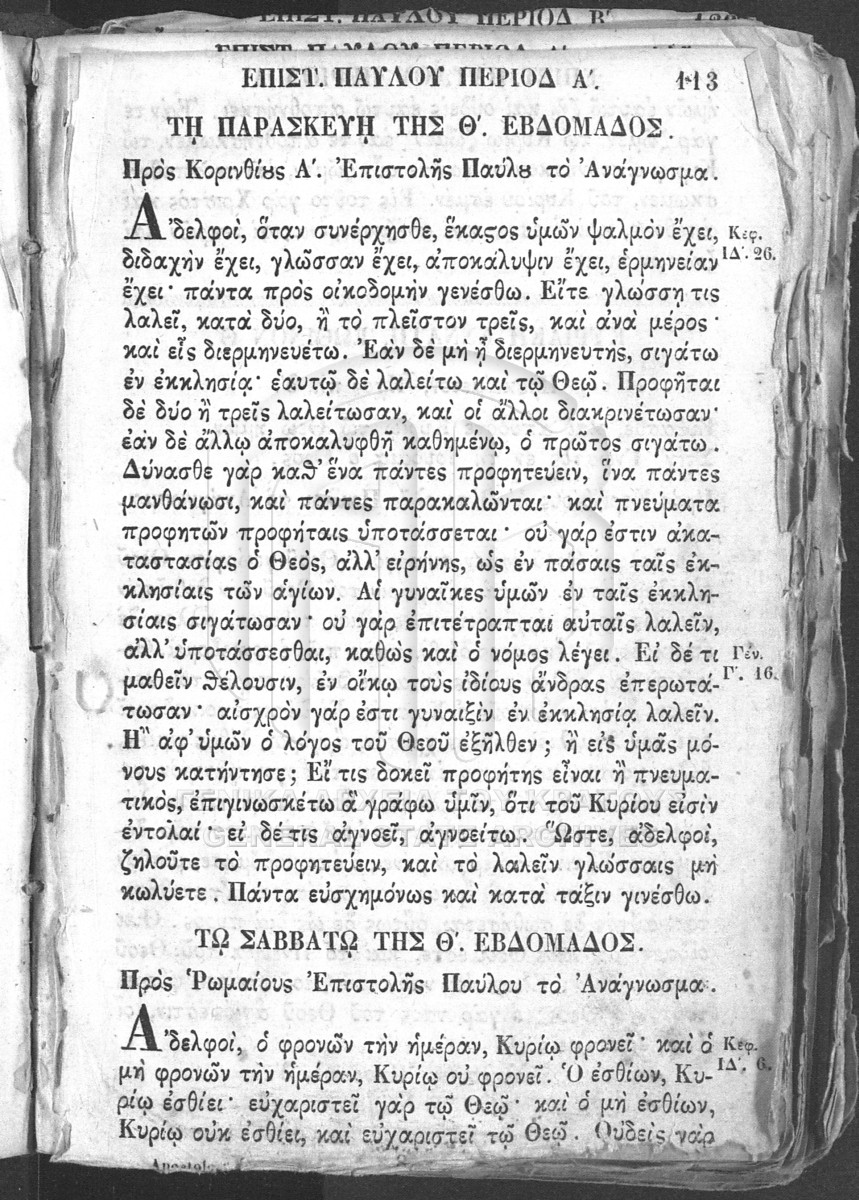 ΕΠΙΣΤ. ΠΑΥΛΟΥ ΠΕΡΙΟΔ Β'.
ΕΠΙΣΤ. ΠΑΥΛΟΥ ΠΕΡΙΟΔ Α'. 113
ΤΗ ΠΑΡΑΣΚΕΥΗ ΤΗΣ Θ'. ΕΒΔΟΜΑΔΟΣ.
Πρὸς Κορινθίȣς Α'. Ἐπιστολῆς Παύλȣ τὸ Ἀνάγνωσμα.
Ἀδελφοὶ, ὅταν συνέρχησθε, ἕκαϛος ὑμῶν ψαλμὸν ἔχει, Κεφ.
διδαχὴν ἔχει, γλῶσσαν ἔχει, ἀποκάλυψιν ἔχει, ἑρμηνείαν ΙΔ'. 26.
ἔχει· πάντα πρὸς οἰκοδομὴν γενέσθω. Εἴτε γλώσσῃ τις
λαλεῖ, κατὰ δύο, ἢ τὸ πλεῖστον τρεῖς, καὶ ἀνὰ μέρος·
καὶ εἷς διερμηνευέτω. Ἐὰν δὲ μὴ ᾖ διερμηνευτὴς, σιγάτω
ἐν ἐκκλησίᾳ· ἑαυτῷ δὲ λαλείτω καὶ τῷ Θεῷ. Προφῆται
δὲ δύο ἢ τρεῖς λαλείτωσαν, καὶ οἱ ἄλλοι διακρινέτωσαν·
ἐὰν δὲ ἄλλῳ ἀποκαλυφθῇ καθημένῳ, ὁ πρῶτος σιγάτω.
Δύνασθε γὰρ καθ' ἕνα πάντες προφητεύειν, ἵνα πάντες
μανθάνωσι, καὶ πάντες παρακαλῶνται· καὶ πνεύματα
προφητῶν προφήταις ὑποτάσσεται· οὐ γάρ ἐστιν ἀκα-
ταστασίας ὁ Θεὸς, ἀλλ' εἰρήνης, ὡς ἐν πάσαις ταῖς ἐκ-
κλησίαις τῶν ἁγίων. Αἱ γυναῖκες ὑμῶν ἐν ταῖς ἐκκλη-
σίαις σιγάτωσαν· οὐ γὰρ ἐπιτέτραπται αὐταῖς λαλεῖν,
ἀλλ' ὑποτάσσεσθαι, καθὼς καὶ ὁ νόμος λέγει. Εἰ δέ τι Γέν.
μαθεῖν θέλουσιν, ἐν οἴκῳ τοὺς ἰδίους ἄνδρας ἐπερωτά- Γ'. 16.
τωσαν· αἰσχρὸν γάρ ἐστι γυναιξὶν ἐν ἐκκλησίᾳ λαλεῖν.
Ἢ ἀφ' ὑμῶν ὁ λόγος τοῦ Θεοῦ ἐξῆλθεν; ἢ εἰς ὑμᾶς μό-
νους κατήντησε; Εἴ τις δοκεῖ προφήτης εἶναι ἢ πνευμα-
τικὸς, ἐπιγινωσκέτω ἃ γράφω ὑμῖν, ὅτι τοῦ Κυρίου εἰσὶν
ἐντολαί· εἰ δέ τις ἀγνοεῖ, ἀγνοείτω. Ὥστε, ἀδελφοὶ,
ζηλοῦτε τὸ προφητεύειν, καὶ τὸ λαλεῖν γλώσσαις μὴ
κωλύετε. Πάντα εὐσχημόνως καὶ κατὰ τάξιν γινέσθω.
ΤΩ ΣΑΒΒΑΤΩ ΤΗΣ Θ'. ΕΒΔΟΜΑΔΟΣ.
Πρὸς Ῥωμαίους Ἐπιστολῆς Παύλου τὸ Ἀνάγνωσμα.
Ἀδελφοὶ, ὁ φρονῶν τὴν ἡμέραν, Κυρίῳ φρονεῖ· καὶ ὁ Κεφ.
μὴ φρονῶν τὴν ἡμέραν, Κυρίῳ οὐ φρονεῖ. Ὁ ἐσθίων, Κυ- ΙΔ'. 6.
ρίῳ ἐσθίει· εὐχαριστεῖ γὰρ τῷ Θεῷ· καὶ ὁ μὴ ἐσθίων,
Κυρίῳ οὐκ ἐσθίει, καὶ εὐχαριστεῖ τῷ Θεῷ. Οὐδεὶς γὰρ
ΓΕΝΙΚΑ ΑΡΧΕΙΑ ΤΟΥ ΚΡΑΤΟΥΣ
GENERAL STATE ARCHIVES